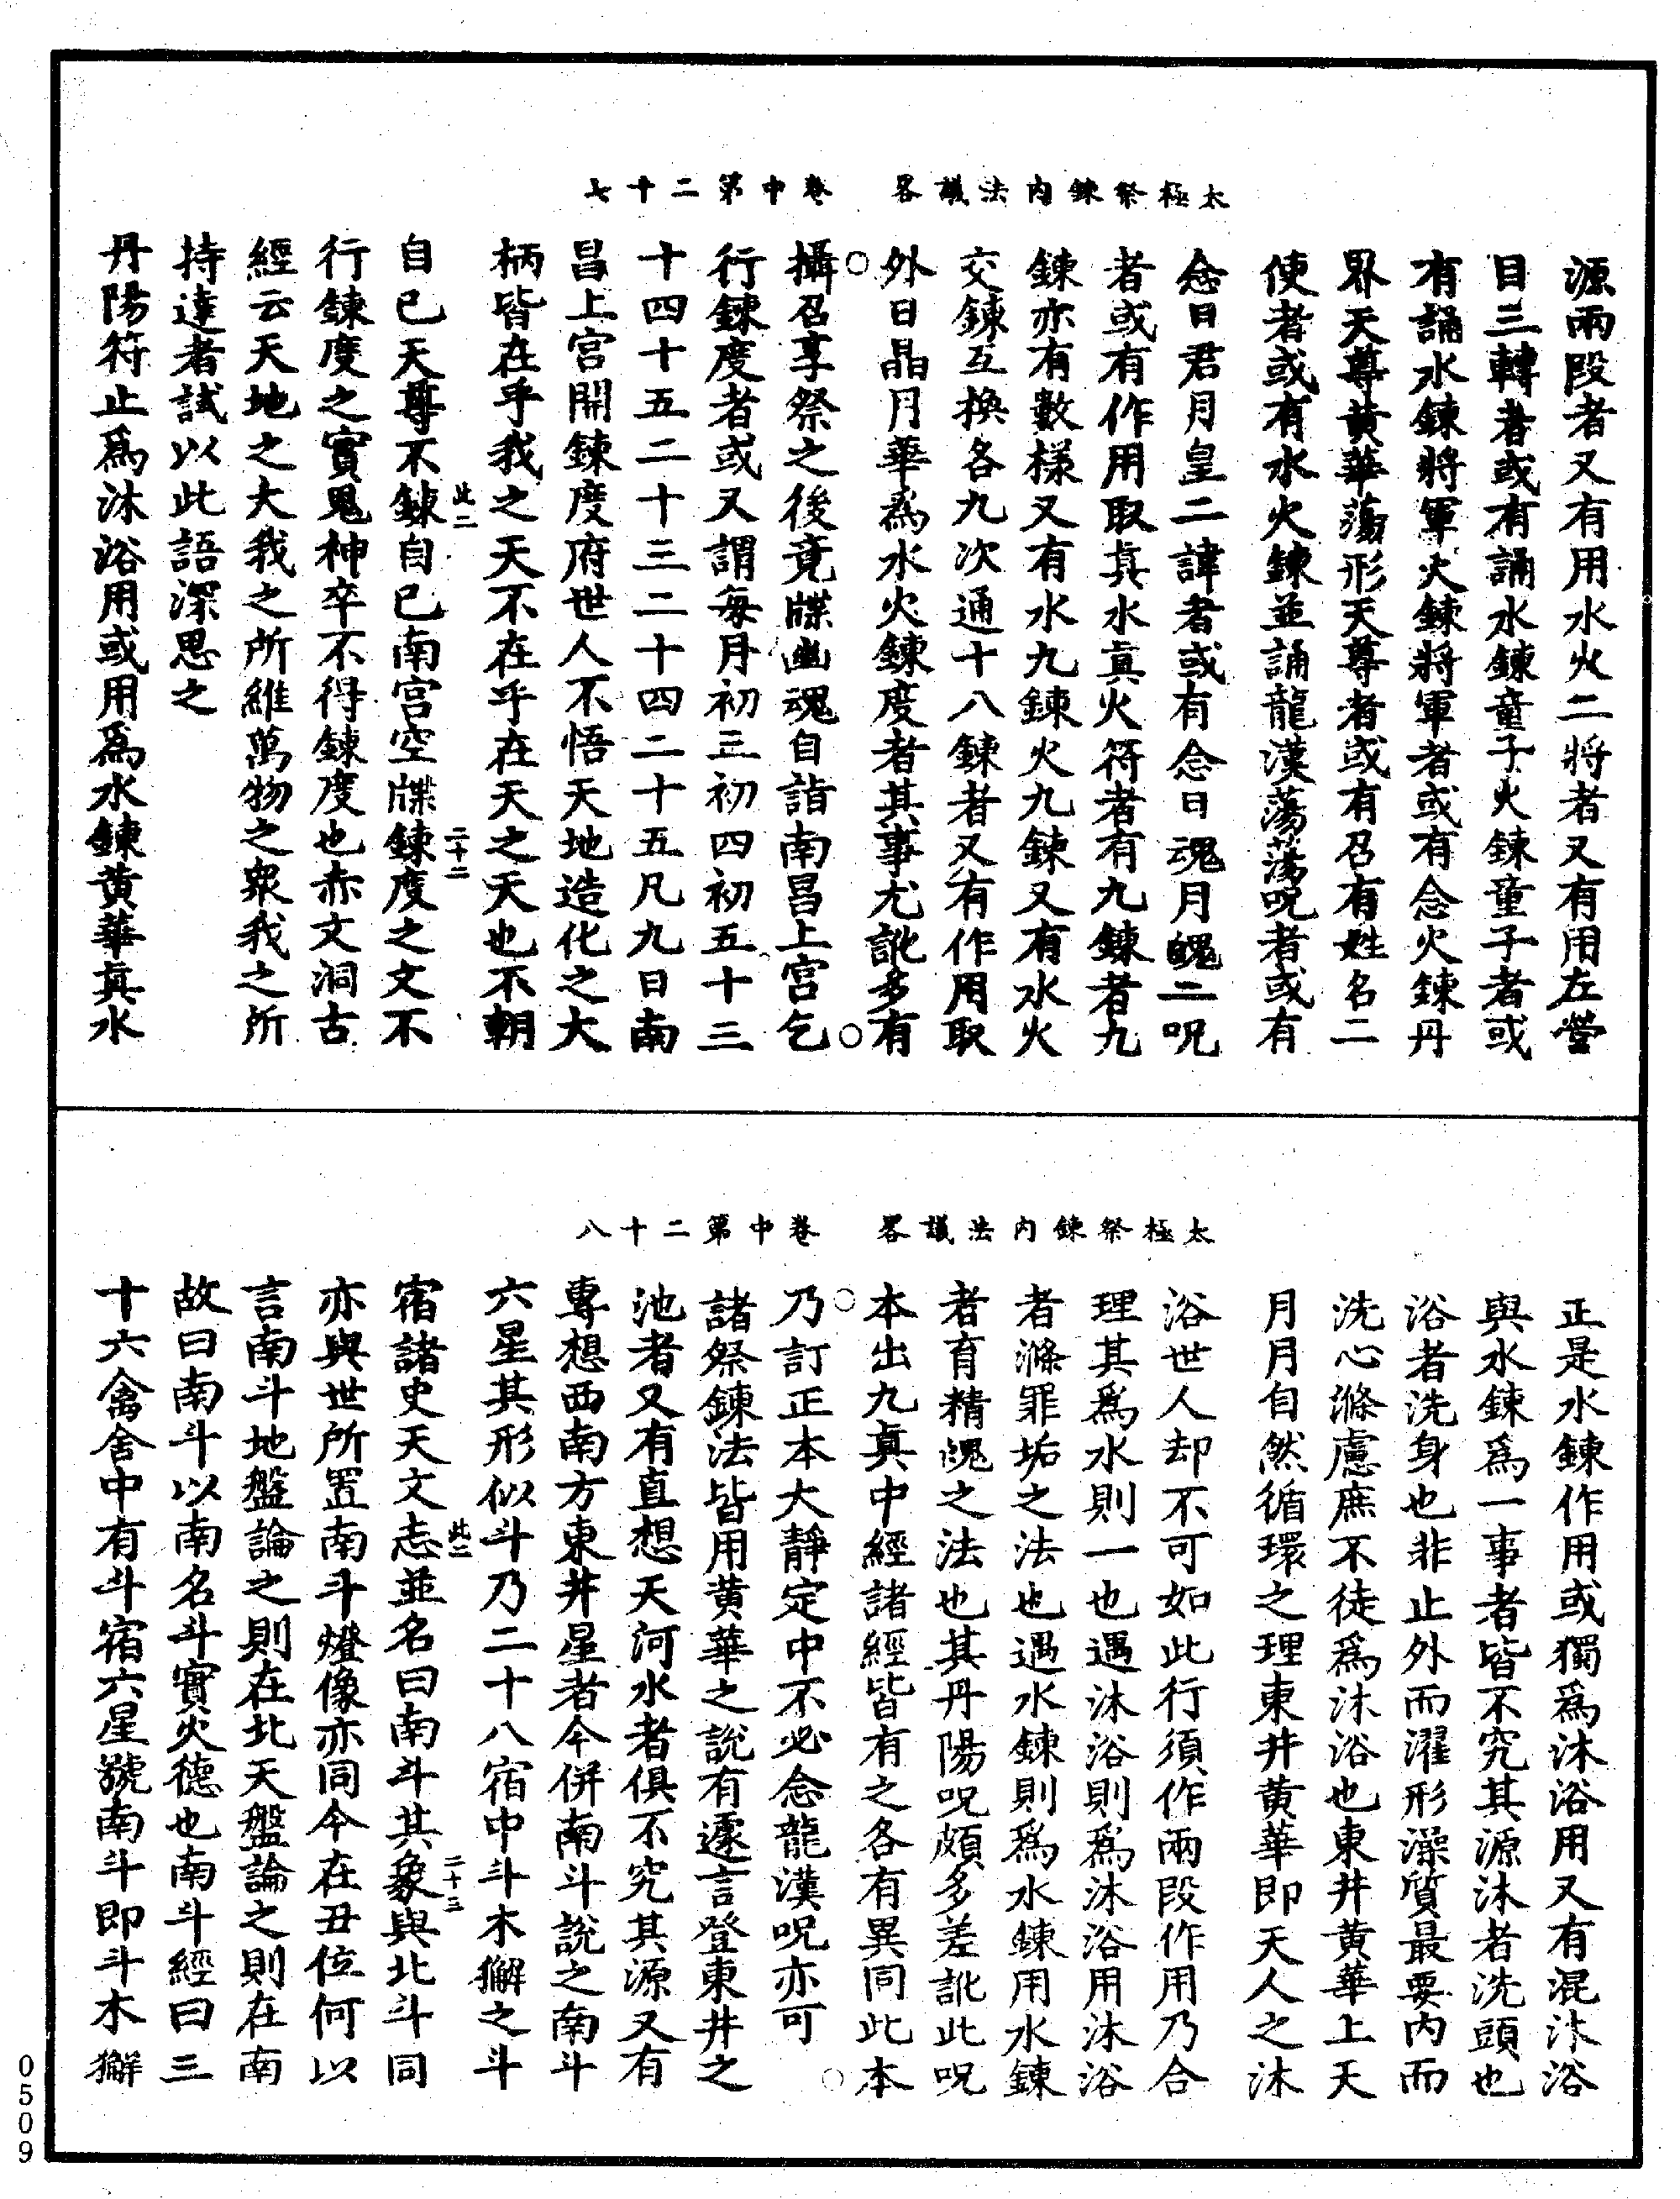 太極祭鍊內法議畧　卷中第二十七
源兩段者又有用水火二將者又有用左營
目三轉者或有誦水鍊童子火鍊童子者或
有誦水鍊將軍火鍊將軍者或有念火鍊丹
界天尊黃華蕩形天尊者或有召有姓名二
使者或有水火鍊並誦龍漢蕩蕩呪者或有
念日君月皇二諱者或有念日魂月魄二呪
者或有作用取真水真火符者有九鍊者九
鍊亦有數樣又有水九鍊火九鍊又有水火
交鍊互換各九次通十八鍊者又有作用取
外日晶月華爲水火鍊度者其事尤訛多有
○攝召享祭之後竟牒幽魂自詣南昌上宮乞○
行鍊度者或又謂每月初三初四初五十三
十四十五二十三二十四二十五凡九日南
昌上宮開鍊度府世人不悟天地造化之大
柄皆在乎我之天不在乎在天之天也不朝
此二　二十二
自已天尊不鍊自已南宮空牒鍊度之文不
行鍊度之實鬼神卒不得鍊度也赤文洞古
經云天地之大我之所維萬物之衆我之所
持達者試以此語深思之
丹陽符止爲沐浴用或用爲水鍊黃華真水
太極祭鍊內法議畧　卷中第二十八
正是水鍊作用或獨爲沐浴用又有混沐浴
與水鍊爲一事者皆不究其源沐者洗頭也
浴者洗身也非止外而濯形澡質最要內而
洗心滌慮庶不徒爲沐浴也東井黃華上天
月月自然循環之理東井黃華即天人之沐
浴世人却不可如此行須作兩段作用乃合
理其爲水則一也遇沐浴則爲沐浴用沐浴
者滌罪垢之法也遇水鍊則爲水鍊用水鍊
者育精魄之法也其丹陽呪頗多差訛此呪
本出九真中經諸經皆有之各有異同此本
○乃訂正本大靜定中不必念龍漢呪亦可○
諸祭鍊法皆用黃華之說有遽言登東井之
池者又有直想天河水者俱不究其源又有
專想西南方東井星者今併南斗說之南斗
六星其形似斗乃二十八宿中斗木獬之斗
此二　二十三
宿諸史天文志並名曰南斗其象與北斗同
亦與世所置南斗燈像亦同今在丑位何以
言南斗地盤論之則在北天盤論之則在南
故曰南斗以南名斗實火德也南斗經曰三
十六禽舍中有斗宿六星號南斗即斗木獬
0509